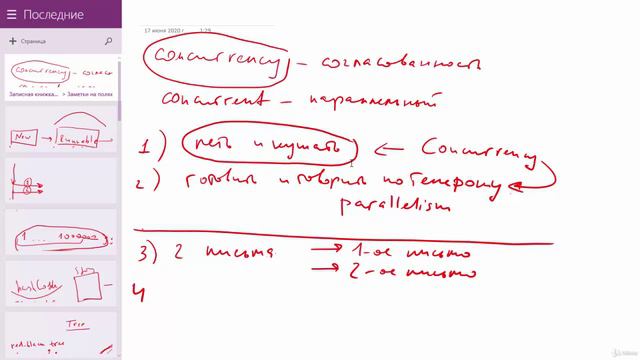 Последние
17 июня 2020 г. 1:29
+ Страница
concurrency – согласованность
concurrent – параллельный
1) петь и кушать ← Concurrency
2) готовить и говорить по телефону ←
parallelism
3) 2 письма → 1-ое письмо
→ 2-ое письмо
4
concurrency – согласо
Записная книжка... > Заметки на полях
New → Runnable
1 ... 1000000
hashCode
Tree
red black tree